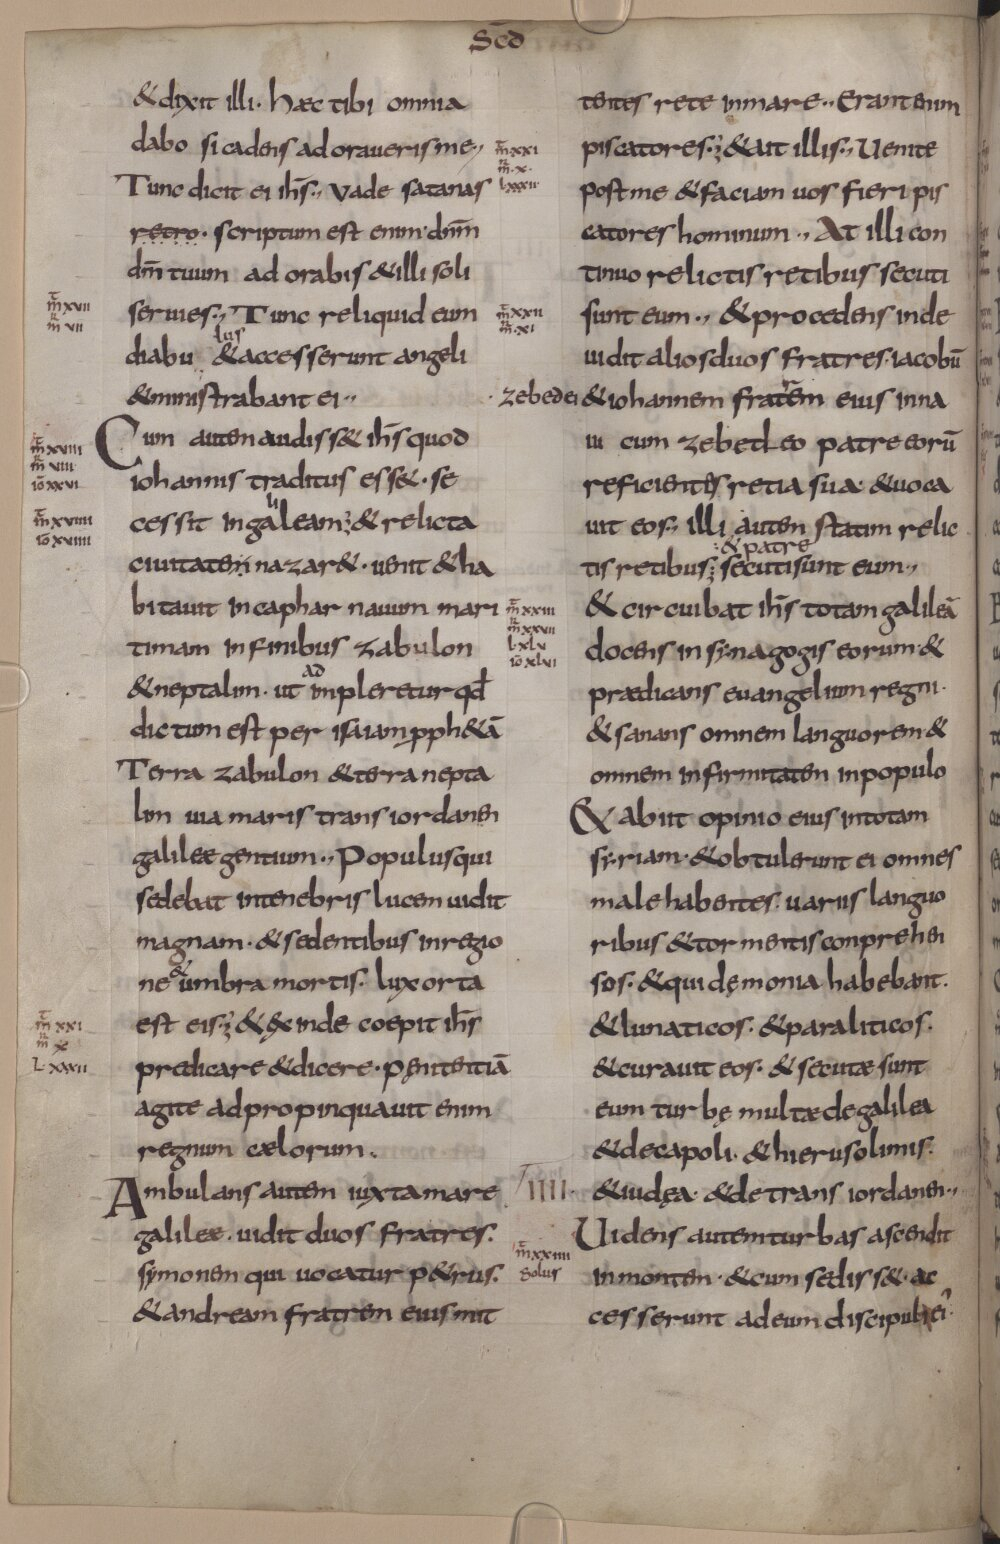 Secd
& dixit illi · haec tibi omnia
dabo si cadens adoraueris me,,
Tunc dicit ei ihs̄·,, Vade satanas
retro · scriptum est enim · dnm̄
dm̄ tuum adorabis & illi soli
m̄ xvii
m̄ vii
seruies·,, Tunc reliquid eum
lus
diabu & accesserunt angeli
& ministrabant ei··
m̄ xviii
m̄ viii
iō xxvi
Cum autem audiss& ihs̄ quod
iohannis traditus ess& · se
m̄ xviiii
iō xviiii
li
cessit in galeam; & relicta
ciuitatem nazar& · uenit & ha
bitauit in caphar nauum mari
timam in finibus zabulon
ad
& neptalim · ut impleretur qd̄
dictum est per isaiam pph&ā
Terra zabulon & terra nepta
lim uia maris trans iordanen
galileæ gentium·, Populus qui
sedebat in tenebris lucem uidit
magnam · & sedentibus in regio
&
ne umbra mortis · lux orta
m̄ xxi
m̄ x
L xxxii
est eis; & exinde coepit ihs̄
predicare & dicere · penitentiā
agite adpropinquauit enim
regnum cælorum·
Ambulans autem iuxta mare
galileæ · uidit duos fratres·
symonem qui uocatur p&rus·
& andream fratrem eius mit
tentes rete in mare·, Erant enim
m̄ xxi
m̄ x
lxxxii
piscatores; & ait illis·, Uenite
post me & faciam uos fieri pis
catores hominum·, At illi con
tinuo relictis retibus secuti
m̄ xxii
m̄ xi
sunt eum·, & procedens inde
uidit alios duos fratres · iacobū
· zebedei
& iohannem fratrem eius in na
ui cum zebedeo patre eorū
reficientes retia sua · & uoca
uit eos·, illi autem statim relic
& patre
tis retibus; secuti sunt eum·,
m̄ xxiii
m̄ xxvii
l xlv
iō xlvi
& circuibat ihs̄ totam galileā
docens in synagogis eorum · &
prædicans euangelium regni·
& sanans omnem languorem &
omnem infirmitatem in populo
& abiit opinio eius in totam
syriam · & obtulerunt ei omnes
male habentes · uariis languo
ribus & tormentis conprehen
sos · & qui dęmonia habebant·
& lunaticos · & paraliticos·
& curauit eos · & secutæ sunt
eum turbę multæ de galilea
& decapoli · & hierusolimis·
IIII·
& iudęa · & de trans iordanen·,
m̄ xxiiii
solus
Uidens autem turbas ascendit
in montem · & cum sediss& · ac
cesserunt ad eum discipuli ei'·